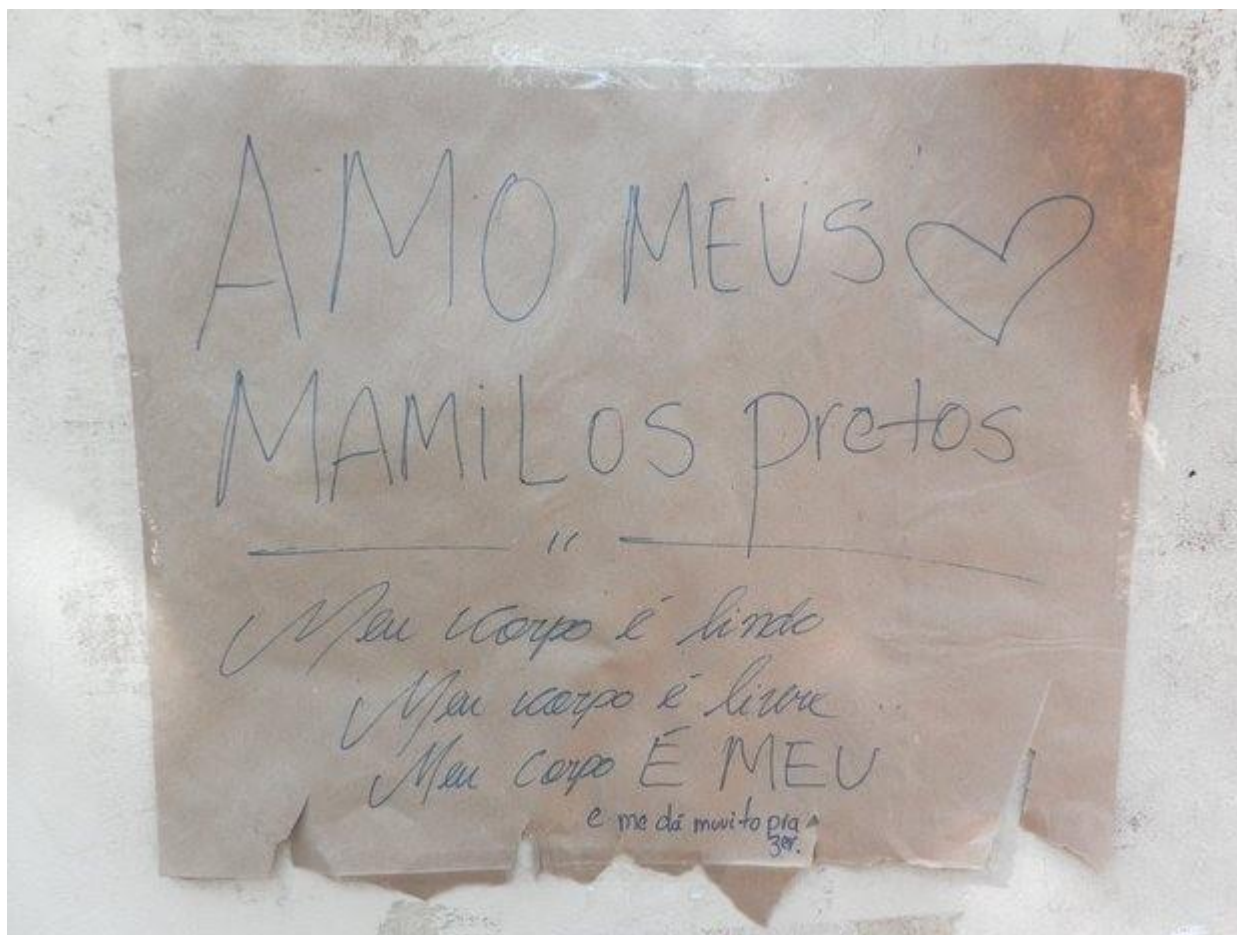 AMO MEUS
MAMiLOS pretos
"
Meu corpo é lindo
Meu corpo é livre..
Meu corpo É MEU
e me dá muuito pra
zer.